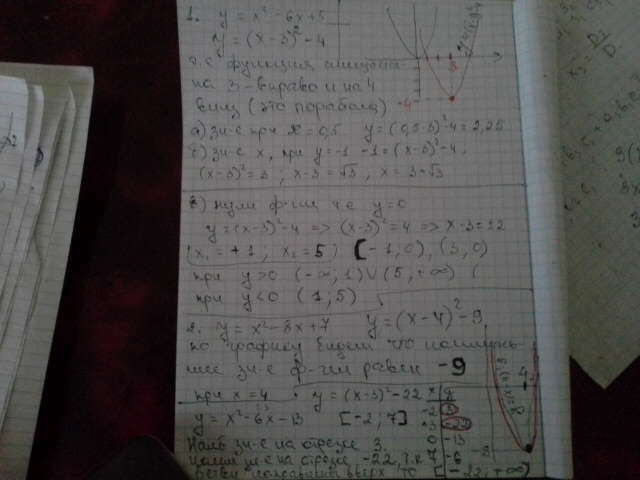 1. y = x² - 6x + 5
y = (x - 3)² - 4
т.е функция смещена
на 3 - вправо и на 4
вниз (это парабола)
а) зн-е при x = 0,5 y = (0,5-3)² - 4 = 2,25
б) зн-е x, при y = -1 -1 = (x-3)² - 4,
(x-3)² = 3 ; x-3 = √3 ; x = 3+√3
в) нули ф-ии т.е y = 0
y = (x-3)² - 4 => (x-3)² = 4 => x-3 = ±2
x₁ = +1, x₂ = 5 (-1,0), (3,0)
при y > 0 (-∞, 1) ∪ (5, +∞)
при y < 0 (1, 5)
2. y = x² - 8x + 7 y = (x-4)² - 9
по графику видим что наимень-
шее зн-е ф-ии равен -9
при x = 4 y = (x-3)² - 22
y = x² - 6x - 13 [-2, 7]
x y
-2 3
3 -22
0 -13
7 -6
Наиб зн-е на отрезке 3,
наим зн-е на отрезке -22, т.к
ветви направлены вверх, то [-22, +∞)
3
-4
4
-9